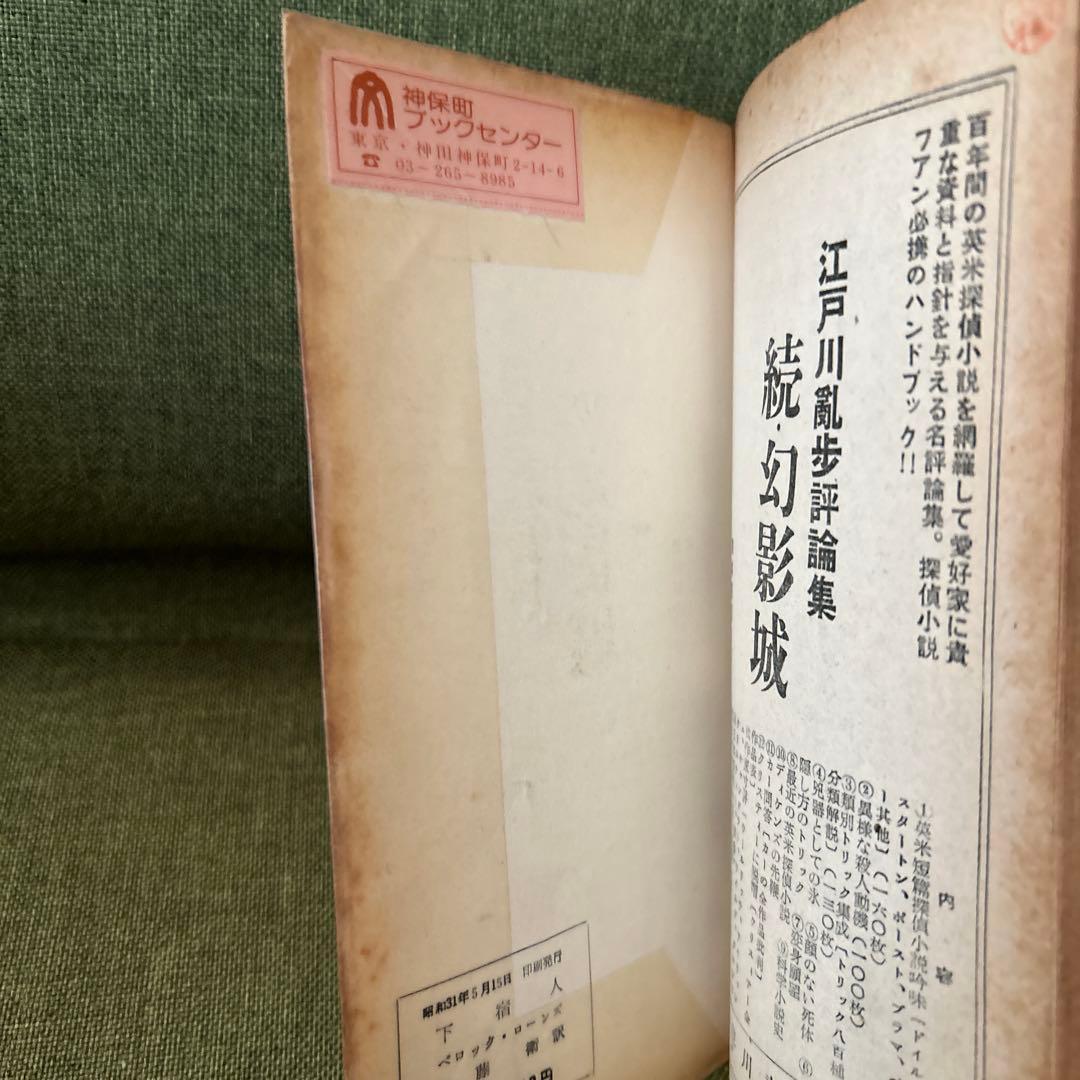 神保町
ブックセンター
東京・神田神保町2-14-6
☎ 03-265-8985
昭和31年5月15日 印刷発行
下宿人
ベロック・ローンズ
藤 衛訳
円
百年間の英米探偵小説を網羅して愛好家に貴
重な資料と指針を与える名評論集。探偵小説
フアン必携のハンドブック!!
江戸川亂步評論集
続・幻影城
内容
①英米短篇探偵小説吟味〔ドイル
スタートン、ポースト、ブラマ、
ー其他〕(一六〇枚)
②異様な殺人動機(一〇〇枚)
③類別トリック集成〔トリック八百種
分類解説〕(一三〇枚)
④兇器としての氷 ⑤顔のない死体 ⑥
隠し方のトリック ⑦変身願望
⑧最近の英米探偵小説 ⑨科学小説史
⑩ディケンズの先鞭
⑪カー問答〔カーの全作品批判〕
川